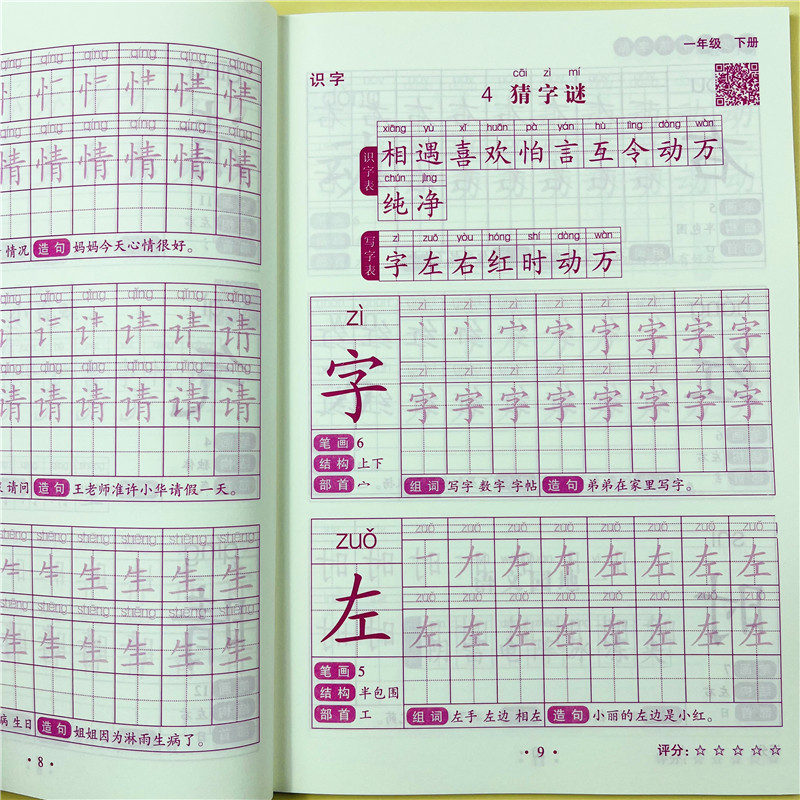 qíng qíng qíng qíng qíng qíng
情 情
qíng qíng qíng qíng qíng qíng
情 情 情 情 情 情
情况 造句 妈妈今天心情很好。
qǐng qǐng qǐng qǐng qǐng qǐng
请 请 请
qǐng qǐng qǐng qǐng qǐng qǐng
请 请 请 请 请 请
请问 造句 王老师准许小华请假一天。
shēng shēng shēng shēng shēng shēng
生 生 生 生 生
shēng shēng shēng shēng shēng shēng
生 生 生 生 生 生
病 生日 造句 姐姐因为淋雨生病了。
·8·
一年级 下册
识字
cāi zì mí
4 猜字谜
识字表
xiāng yù xǐ huān pà yán hù lìng dòng wàn
相 遇 喜 欢 怕 言 互 令 动 万
chún jìng
纯 净
写字表
zì zuǒ yòu hóng shí dòng wàn
字 左 右 红 时 动 万
zì
字
笔画 6
结构 上下
部首 宀
zì zì zì zì zì zì zì zì
字 字 字 字
zì zì zì zì zì zì zì zì
字 字 字 字 字 字 字 字
组词 写字 数字 字帖 造句 弟弟在家里写字。
zuǒ
左
笔画 5
结构 半包围
部首 工
zuǒ zuǒ zuǒ zuǒ zuǒ zuǒ zuǒ zuǒ
一 左 左 左 左 左
zuǒ zuǒ zuǒ zuǒ zuǒ zuǒ zuǒ zuǒ
左 左 左 左 左 左 左 左
组词 左手 左边 相左 造句 小丽的左边是小红。
·9·
评分：☆☆☆☆☆